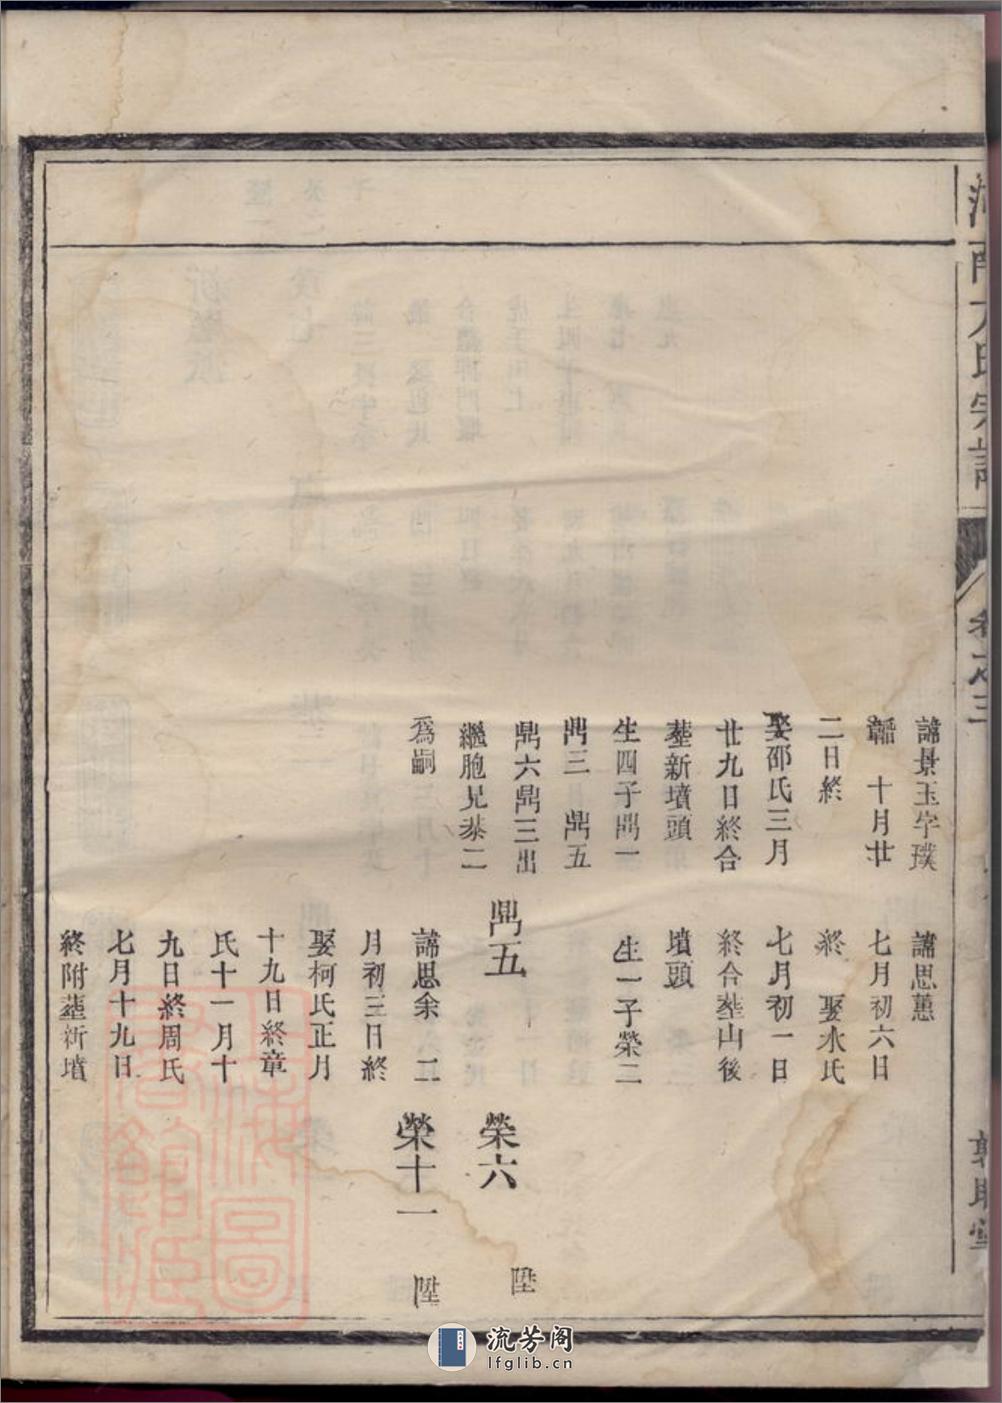 方氏宗譜
卷之三
諱景玉字璞
韞　十月廿
二日終
娶邵氏三月
廿九日終合
塟新墳頭
生四子鼎一
鼎三　鼎五
鼎六鼎三出
繼胞兄㳟二
爲嗣
諱思蕙
七月初六日
終　娶水氏
七月初一日
終合塟山後
墳頭
生一子榮二
鼎五
諱思余　二
月初三日終
娶柯氏正月
十九日終章
氏十一月十
九日終周氏
七月十九日
終附塟新墳
榮六
陞
榮十一
陞
上海圖書館藏
流芳阁
lfglib.cn